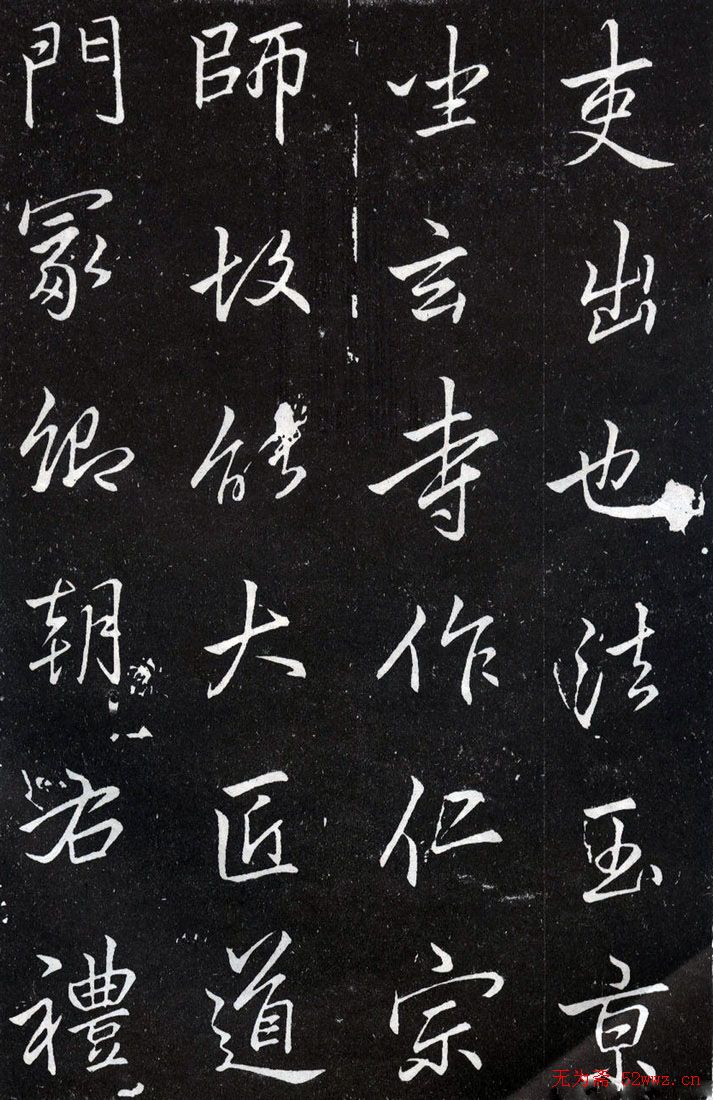 吏出也法玉京
坐玄寺作仁宗
師故能大匠道
門冢卿朝右禮
无为斋 52wwz.cn